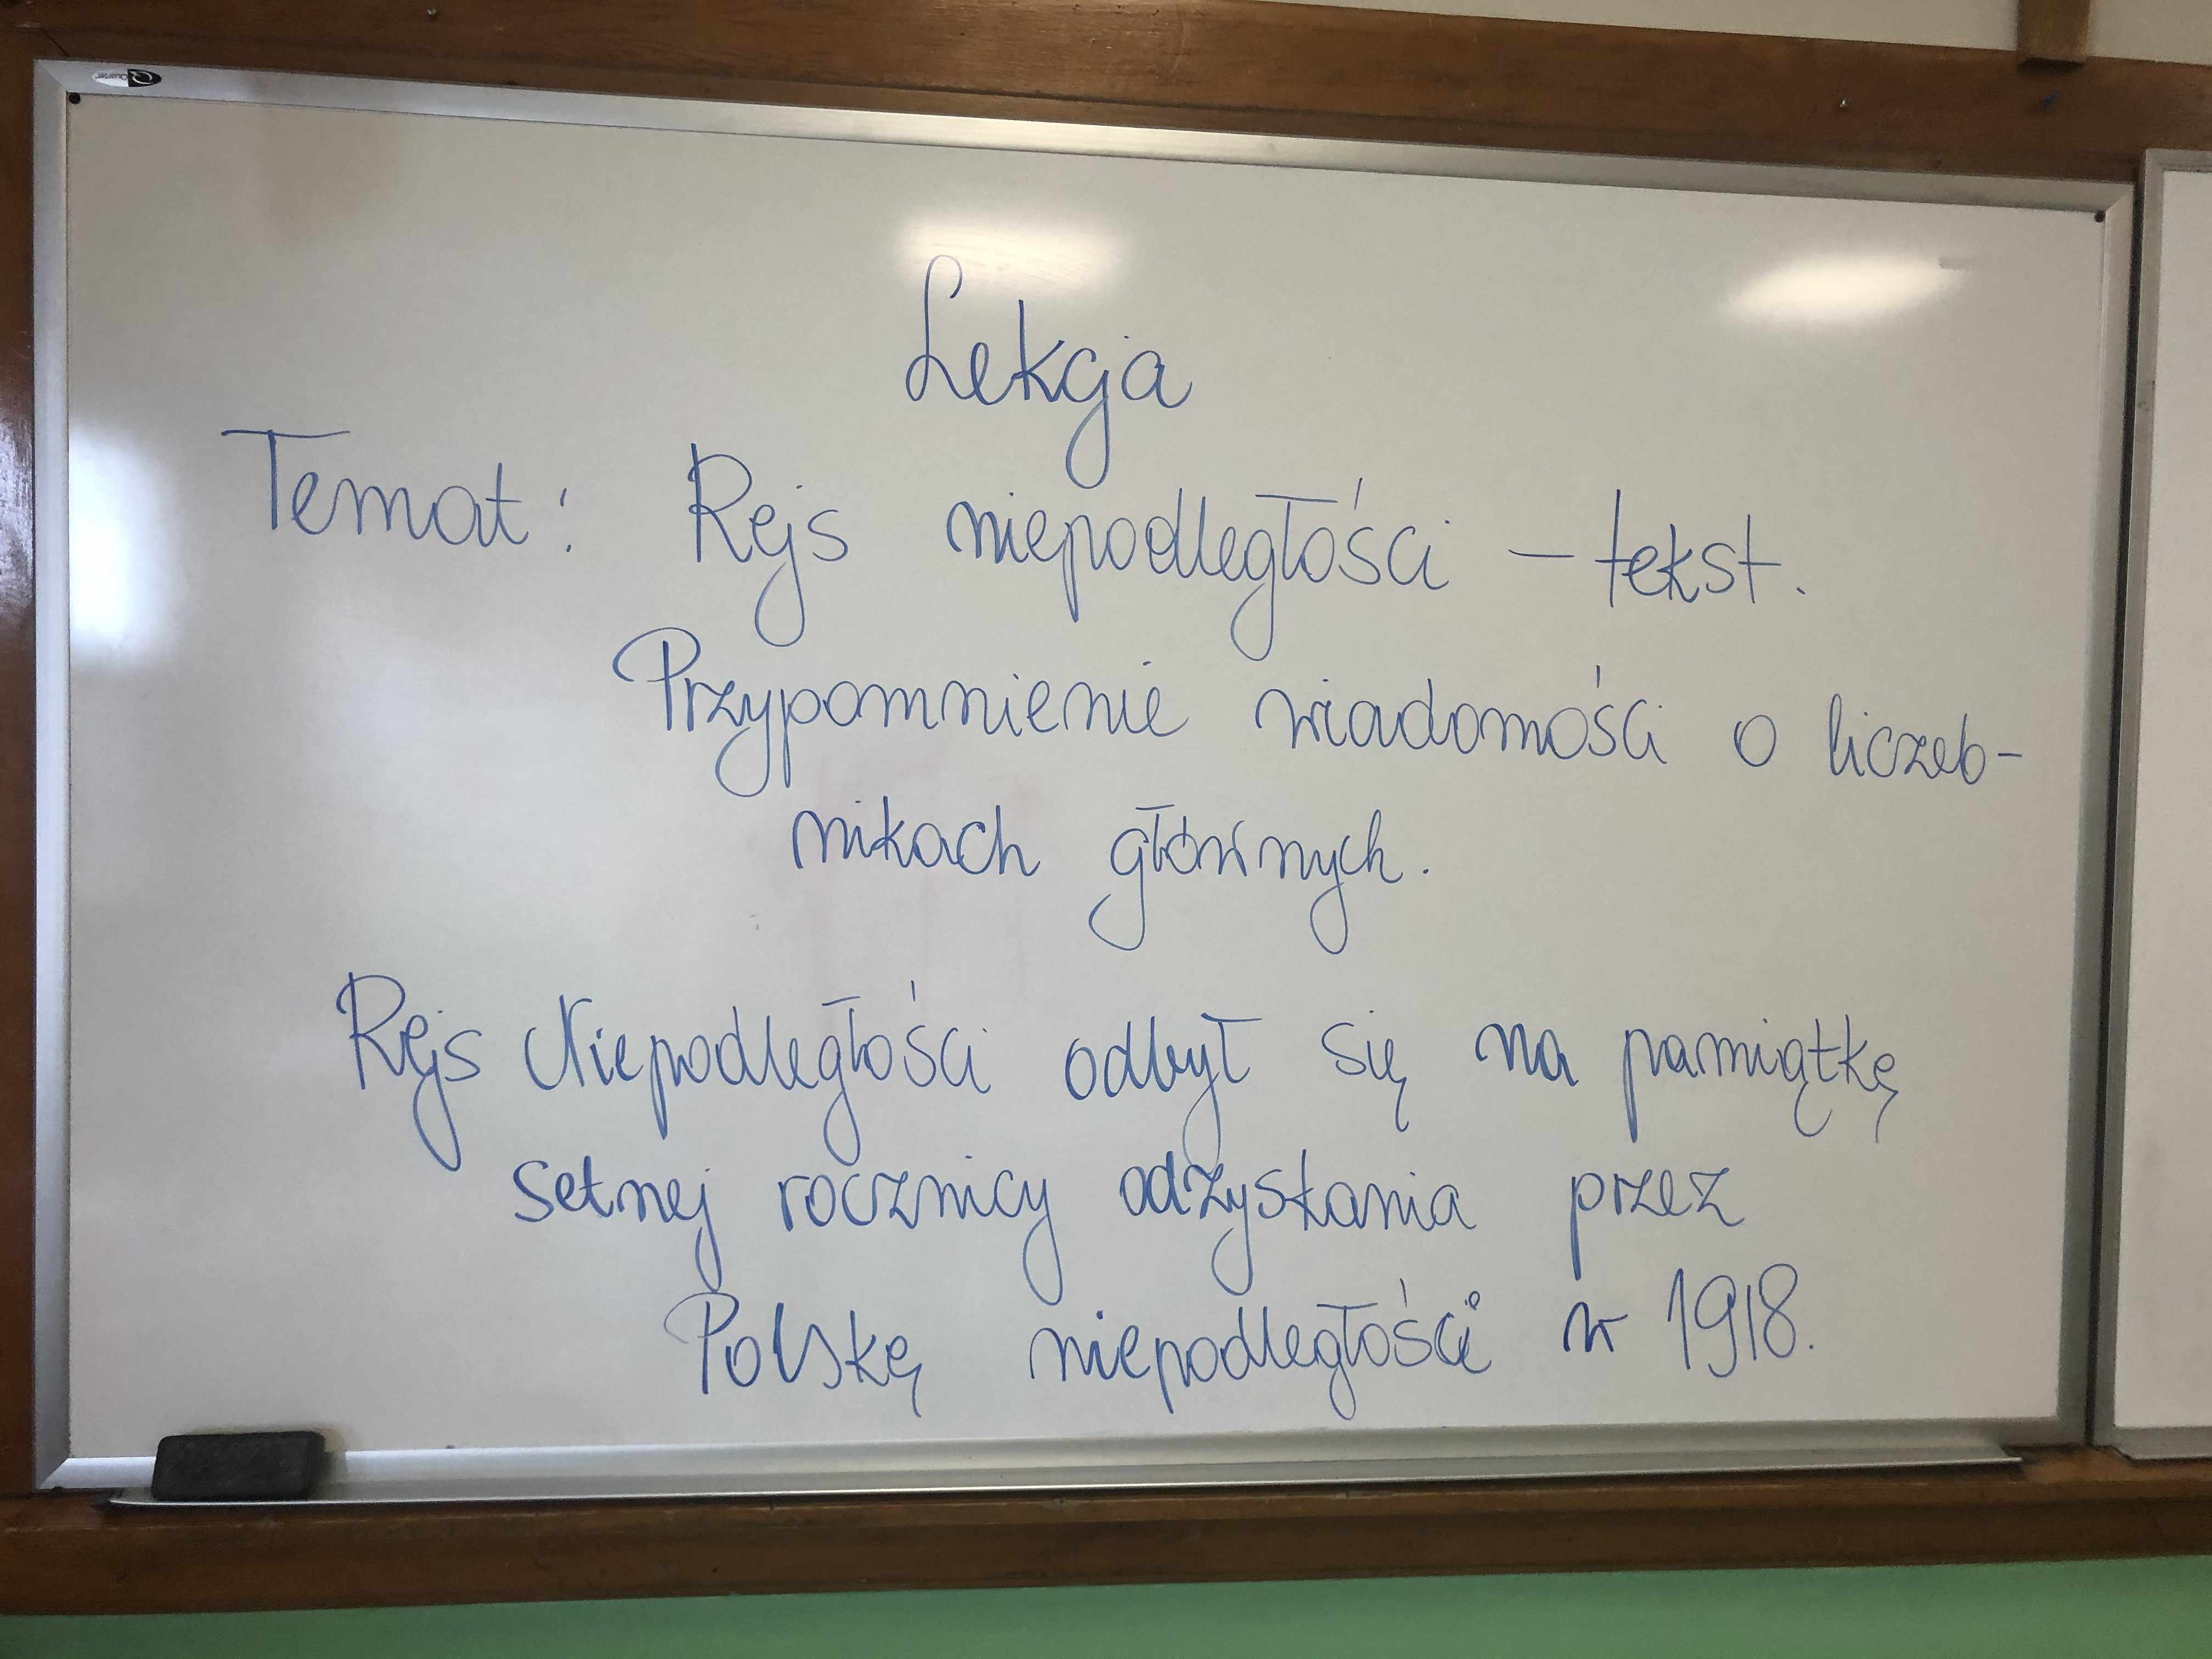 Lekcja
Temat: Rejs niepodległości – tekst.
Przypomnienie wiadomości o liczeb-
nikach głównych.
Rejs Niepodległości odbył się na pamiątkę
setnej rocznicy odzyskania przez
Polskę niepodległości w 1918.